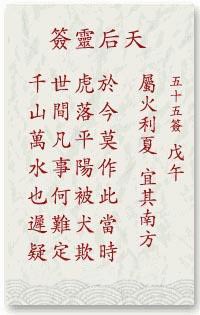 天后靈簽
五十五簽 戊午
屬火利夏 宜其南方
於今莫作此當時
虎落平陽被犬欺
世間凡事何難定
千山萬水也遲疑